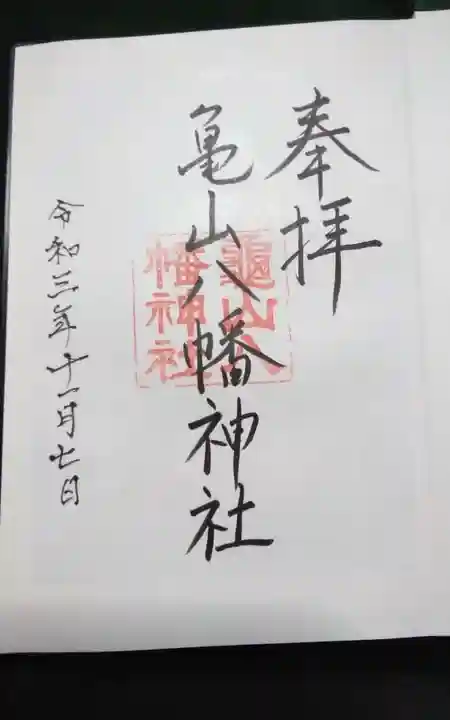 奉拝
亀山八幡神社
龜山八
幡神社
令和三年十一月七日